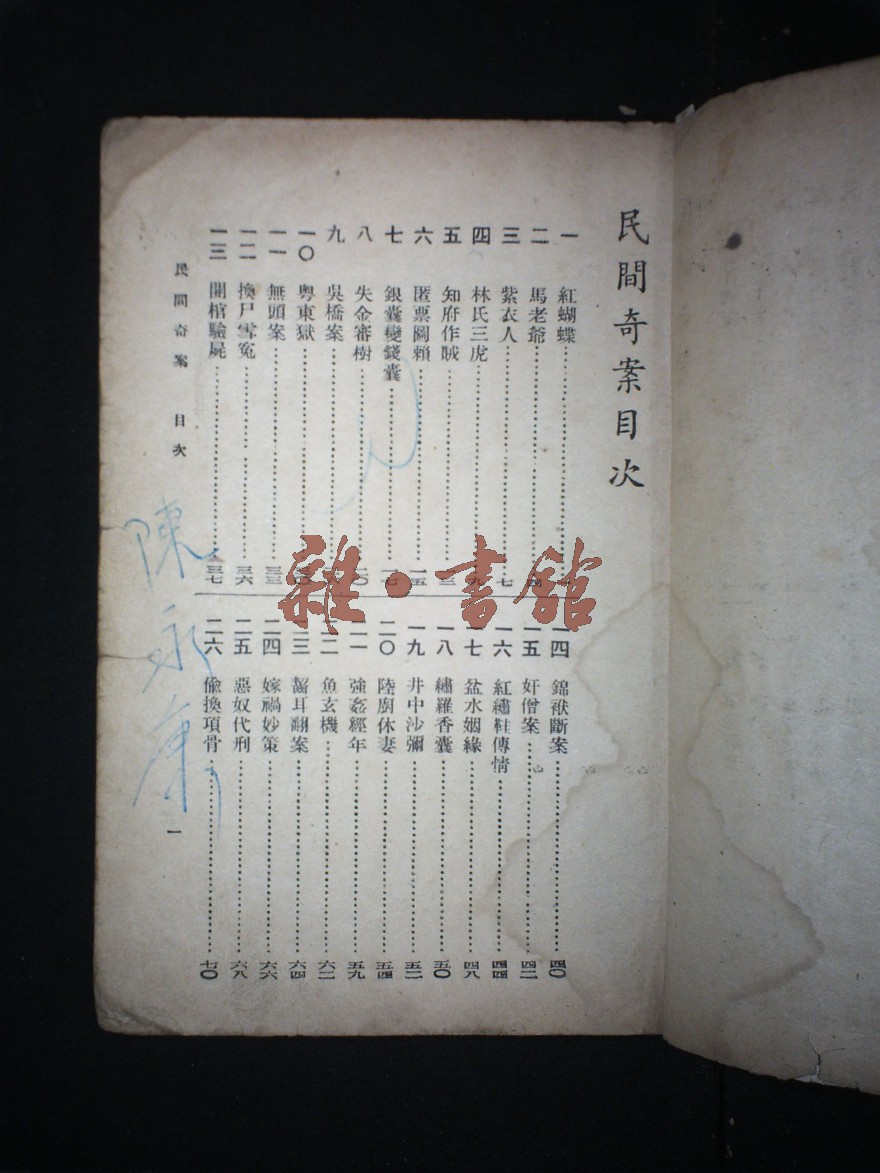 民間奇案目次
一 紅蝴蝶
二 馬老爺
三 紫衣人 七
四 林氏三虎 九
五 知府作賊
六 匿票圖賴 一五
七 銀囊變錢囊 一七
八 失金審樹 二〇
九 吳橋案
一〇 粵東獄
一一 無頭案 三三
一二 換尸雪冤 三六
一三 開棺驗屍 三七
一四 錦袱斷案 四〇
一五 奸僧案 四二
一六 紅繡鞋傳情 四四
一七 盆水姻緣 四八
一八 繡羅香囊 五〇
一九 井中沙彌 五二
二〇 陸廚休妻 五四
二一 強姦經年 五九
二二 魚玄機 六二
二三 齧耳翻案 六四
二四 嫁禍妙策 六六
二五 惡奴代刑 六八
二六 偷換項骨 七〇
民間奇案 目次
一
陳永康
雜·書館